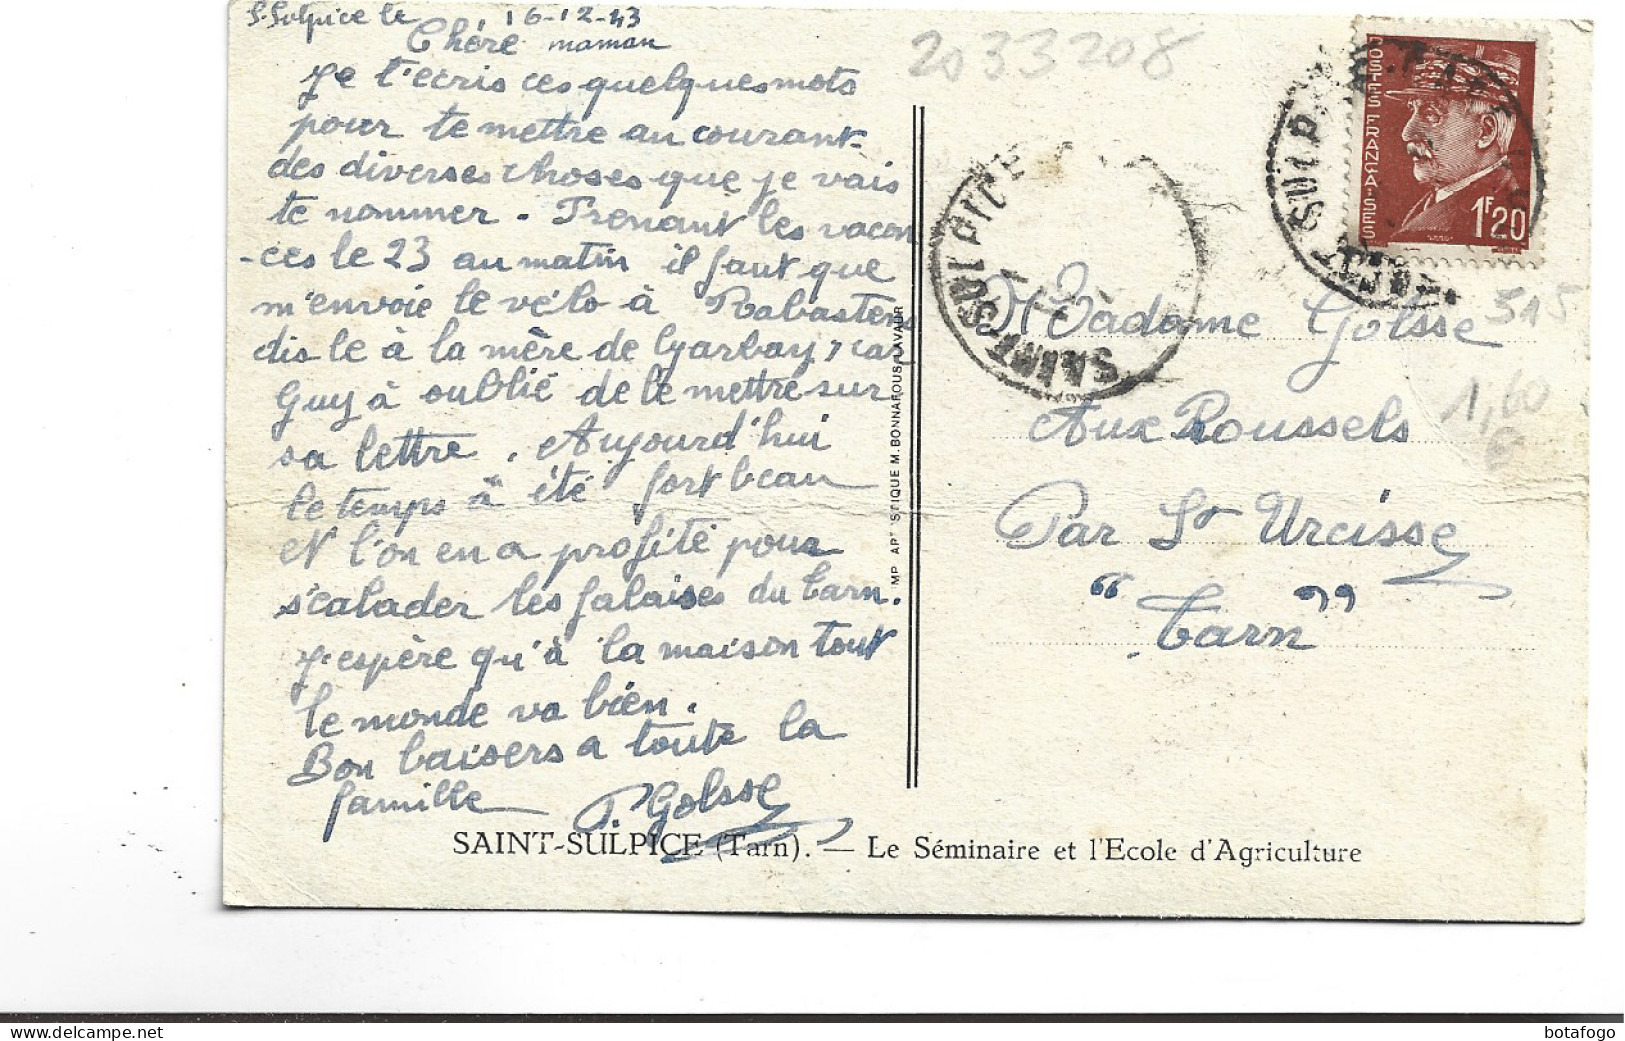 S. Sulpice le 16-12-43
Chère maman
Je t'ecris ces quelques mots
pour te mettre au courant
des diverses choses que je vais
te nommer. Prenant les vacan
-ces le 23 au matin il faut que
m'envoie le vélo à Rabastens
dis le à la mère de Garbay, car
Guy à oublié de le mettre sur
sa lettre. Aujourd'hui
le temps à été fort beau
et l'on en a profité pour
s'calader les falaises du Tarn.
J'espère qu'à la maison tout
le monde va bien.
Bon baisers a toute la
famille P. Golsse
2033208
IMP ARTISTIQUE M. BONNAFOUS LAVAUR
POSTES FRANÇAISES
1F20
SAINT-SULPICE
Madame Golsse
Aux Roussels
Par St Urcisse
"Tarn"
515
1,60
€
SAINT-SULPICE (Tarn). — Le Séminaire et l'Ecole d'Agriculture
botafogo